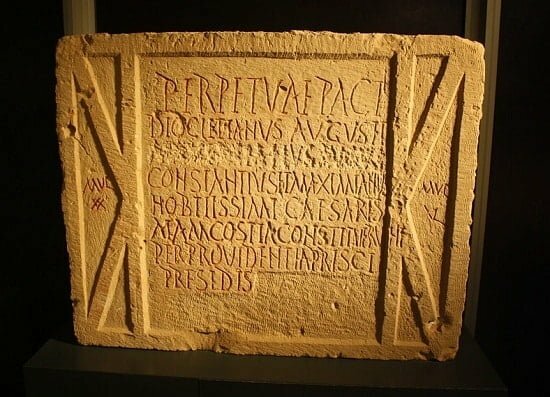 PERPETVAE PACI
DIOCLETIANVS AVGVSTI
CONSTANTIVS ET MAXIMIANVS
NOBILISSIMI CAESARES
ALAM COSTIA CONSTITVERVNT
PER PROVIDENTIA PRISCI
PRESEDIS
MVL
XX
MVL
XL